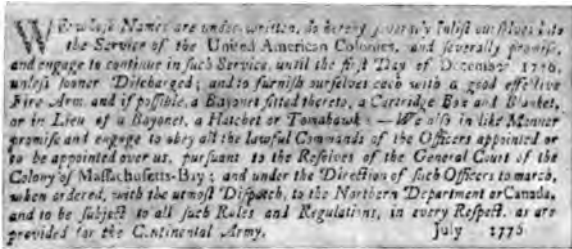 WE whose Names are under-written, do hereby severally inlist ourselves into
the Service of the United American Colonies, and severally promise,
and engage to continue in such Service, until the first Day of December 1776,
unless sooner Discharged; and to furnish ourselves each with a good effective
Fire Arm, and if possible, a Bayonet fitted thereto, a Cartridge Box and Blanket,
or in Lieu of a Bayonet, a Hatchet or Tomahawk: — We also in like Manner
promise and engage to obey all the lawful Commands of the Officers appointed or
to be appointed over us, pursuant to the Resolves of the General Court of the
Colony of Massachusetts-Bay; and under the Direction of such Officers to march,
when ordered, with the utmost Dispatch, to the Northern Department or Canada,
and to be subject to all such Rules and Regulations, in every Respect, as are
provided for the Continental Army. July 1776